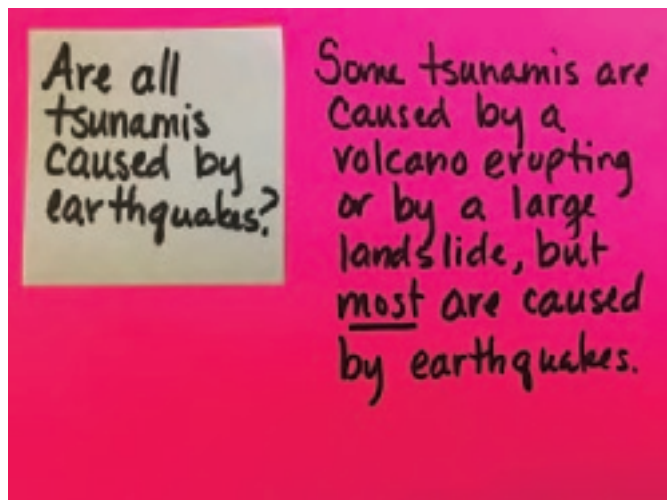 Are all
tsunamis
caused by
earthquakes?
Some tsunamis are
caused by a
volcano erupting
or by a large
landslide, but
most are caused
by earthquakes.